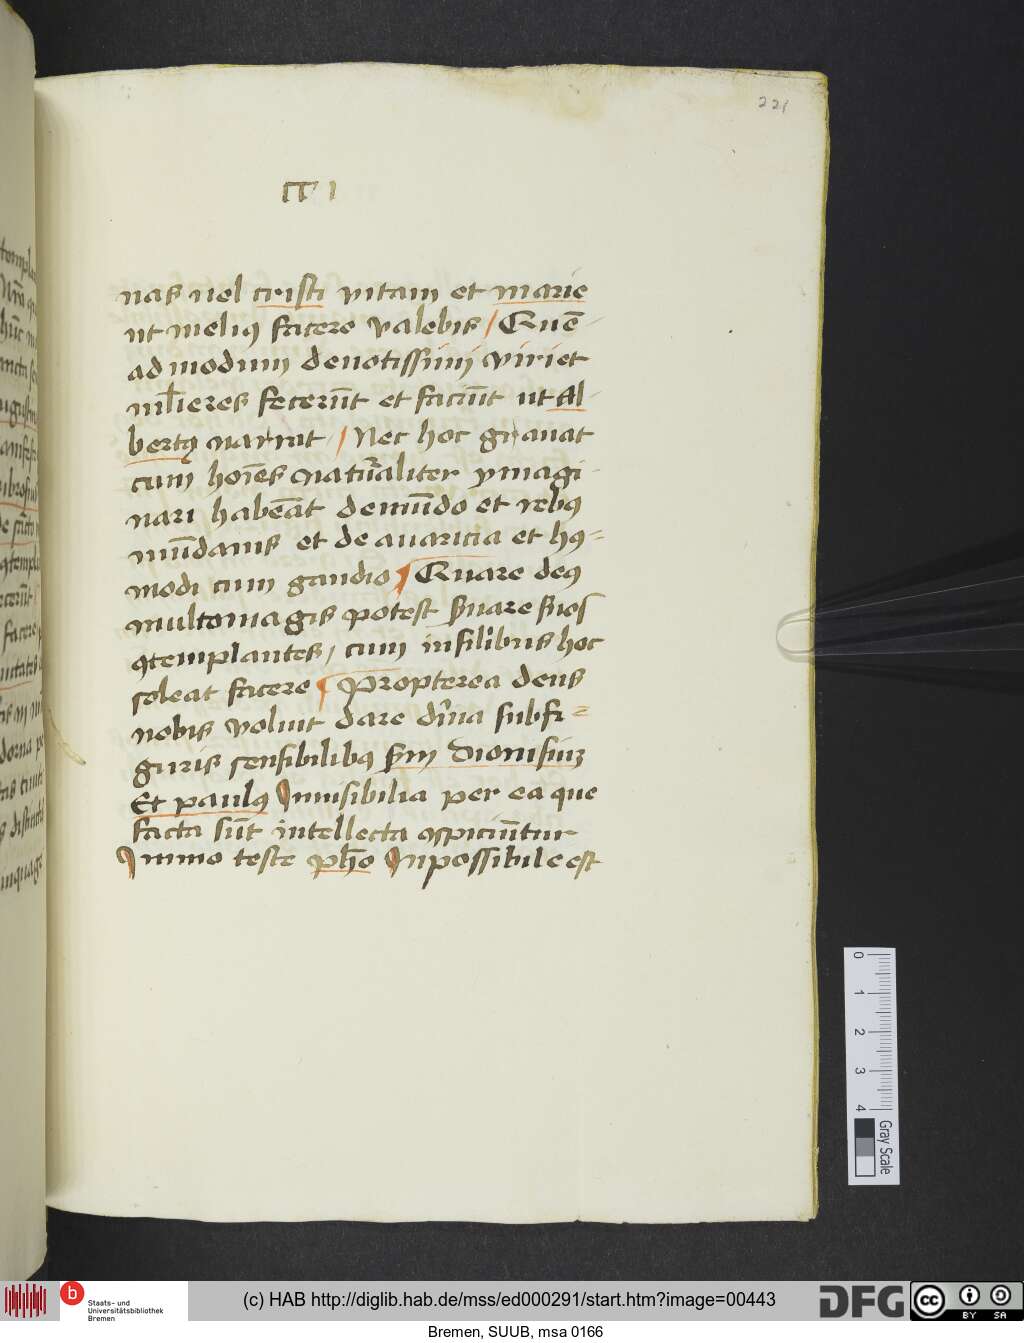 221
nas uel cristi vitam et marie
ut meliꝰ facere valebis / Quē-
admodum deuotissimi viri et
ml̄ieres fecerūt et faciūt ut Al-
bertꝰ narrat / Nec hoc grauat
cum hoīes natūaliter ymagi-
nari habeāt de mūdo et rebꝰ
mūdanis et de auaricia et hꝰ-
modi cum gaudio / Quare deꝰ
multo magis potest suare suos
ꝯtemplantes / cum in silibus hoc
soleat facere / Propterea deus
nobis voluit dare diuīa sub fi-
guris sensibilibꝰ sm̄ Dionisiuz
Et paulꝰ Inuisibilia per ea que
facta sūt intellecta ꝯspiciūtur
Immo teste pho Inpossibile est
0 1 2 3 4
Gray Scale
b
Staats- und
Universitätsbibliothek
Bremen
(c) HAB http://diglib.hab.de/mss/ed000291/start.htm?image=00443
DFG
cc BY SA
Bremen, SUUB, msa 0166